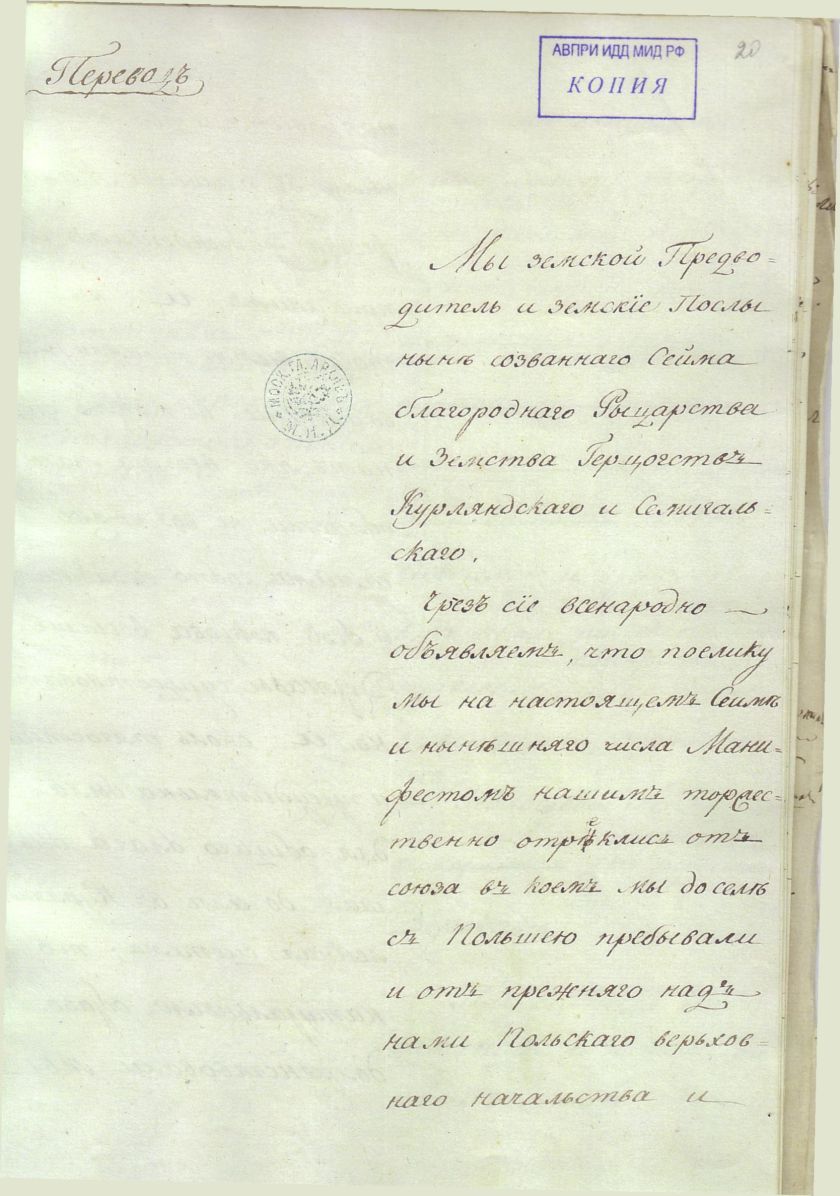 Переводъ
АВПРИ ИДД МИД РФ
КОПИЯ
20
Мы земской Предво-
дитель и земскіе Послы
нынѣ созваннаго Сейма
благороднаго Рыцарства
и Земства Герцогствъ
Курляндскаго и Семигаль-
скаго.
МОСК. ГЛ. АРХИВЪ
М. И. Д.
Чрезъ сіе всенародно
объявляемъ, что поелику
мы на настоящемъ Сеимѣ
и нынѣшняго числа Мани-
фестомъ нашимъ торжес-
твенно отреклись отъ
союза въ коемъ мы доселѣ
съ Польшею пребывали
и отъ прежняго надъ
нами Польскаго верьхов-
наго начальства и